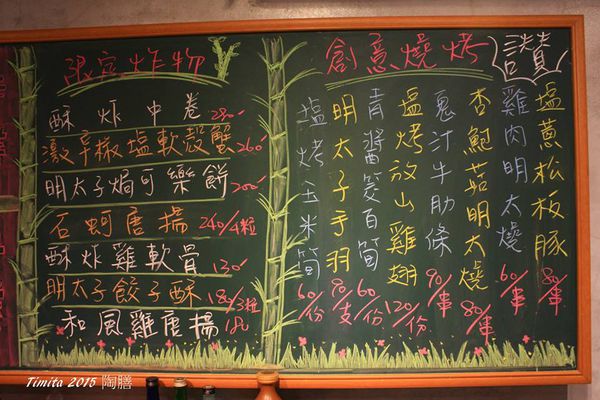 限定炸物
酥炸中卷 280
激辛椒塩軟殼蟹 260
明太子焗可樂餅 200
石蚵唐揚 240/4粒
酥炸雞軟骨 130
明太子餃子酥 180/3粒
和風雞唐揚 180
創意燒烤
讚
塩蔥松板豚 80/串
雞肉明太燒 60/串
杏鮑菇明太燒 80/串
牛肋條 90/串
塩烤放山雞翅 120/份
青醬筊白筍 60/份
明太子手羽 90/支
塩烤玉米筍 60/份
Timita 2015 陶膳